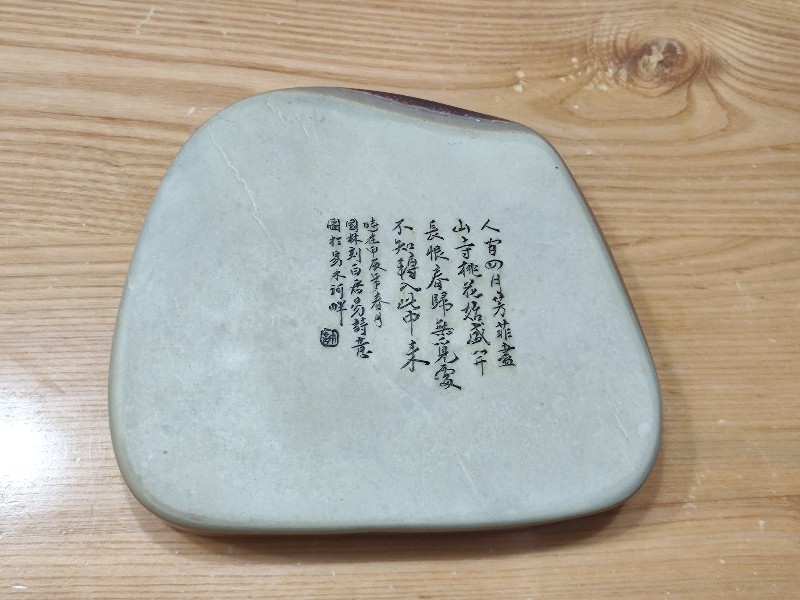 人間四月芳菲盡
山寺桃花始盛開
長恨春歸無覓處
不知轉入此中來
時在甲辰年春月
國林刻白居易詩意
圖於易水河畔